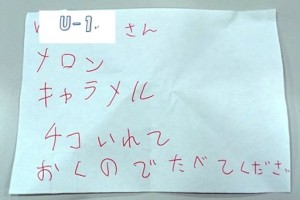 U-1 さん
メロン
キャラメル
チコいれて
おくのでたべてくださ